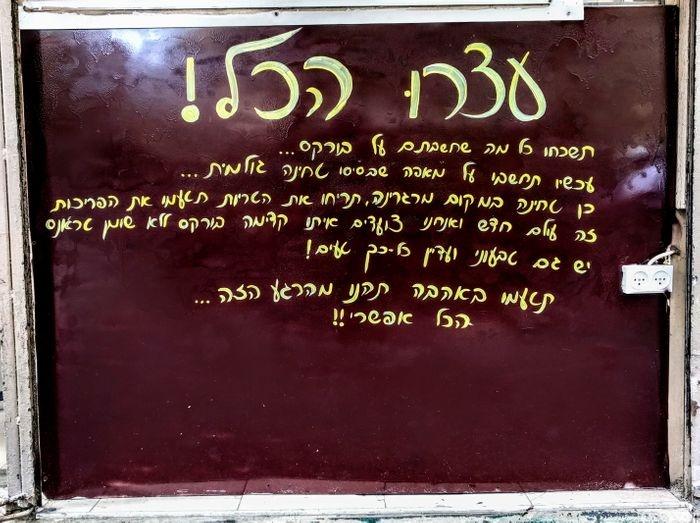 עצרו הכל!
תשכחו כל מה שחשבתם על בורקס...
עכשיו תחשבו על מאפה שבסיסו טחינה גולמית...
כן טחינה במקום מרגרינה, תריחו את הטריות תטעמו את הפריכות
זה עולם חדש ואנחנו צועדים איתו קדימה בורקס ללא שומן טראנס
יש גם טבעוני ועדיין כל-כך טעים!
תטעמו באהבה תהנו מהרגע הזה...
הכל אפשרי!!